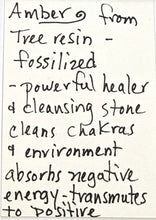 Amber from
Tree resin -
fossilized
- powerful healer
& cleansing stone
cleans chakras
& environment
absorbs negative
energy - transmutes
to positive